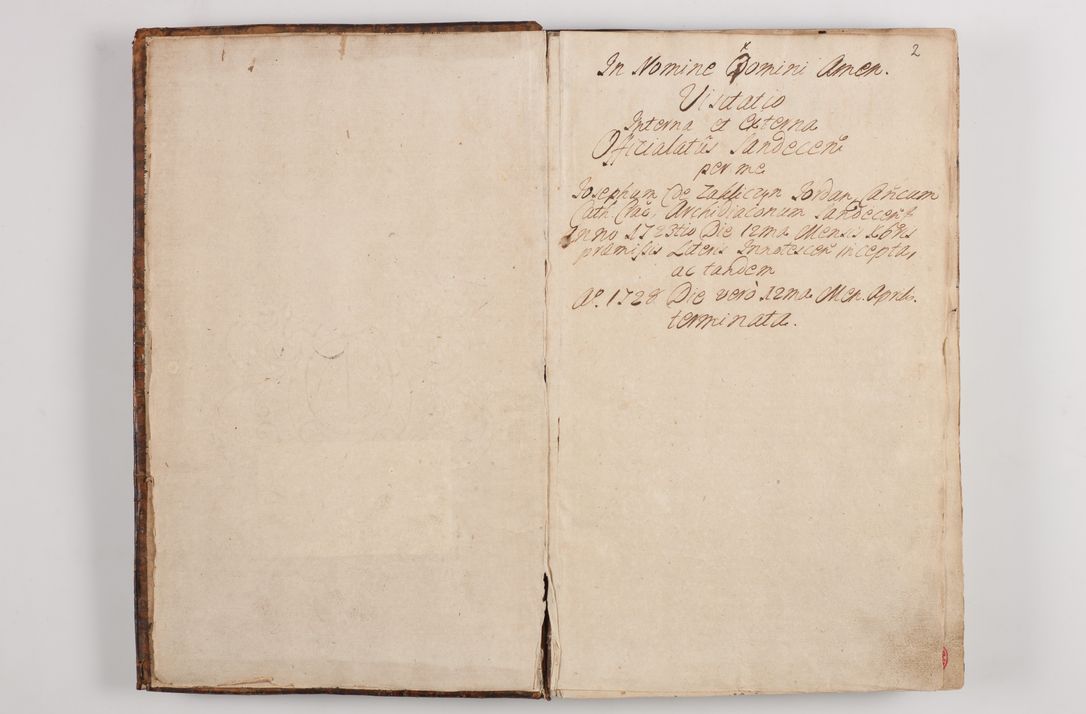 2
In Nomine Domini Amen.
Visitatio
Interna et Externa
Officialatûs Sandecen̄
per me
Josephum de Zakliczyn Jordan, Cancum
Cath. Crac. Archidiaconum Sandecen̄
Anno 1723tio Die 12ma Mensis Xbris
præmissis Literis Innotescen̄ incepta,
ac tandem
Aº. 1728 Die verò 12ma Men. Aprilis
terminata.